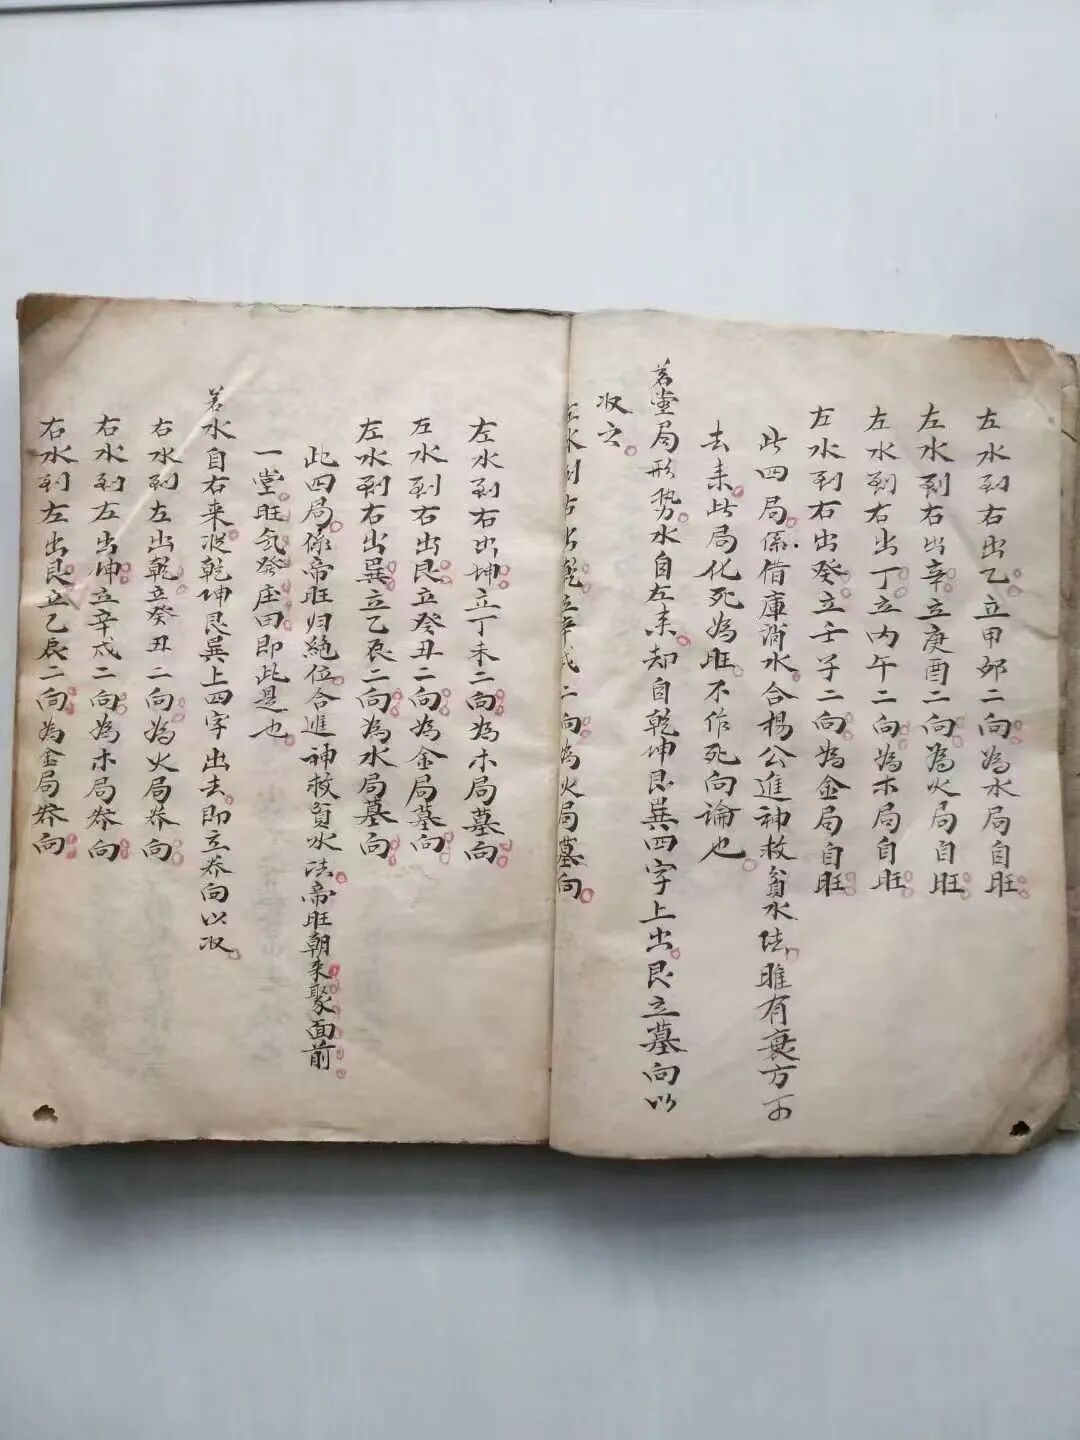 左水到右出乙立甲卯二向為水局自旺
左水到右出辛立庚酉二向為火局自旺
左水到右出丁立丙午二向為木局自旺
左水到右出癸立壬子二向為金局自旺
此四局係借庫消水合楊公進神救貧水法雖有衰方可
去来此局化死為旺不作死向論也
若堂局形势水自左来却自乾坤艮巽四字上出艮立墓向以
収之
左水到右出乾立辛戌二向為火局墓向
左水到右出坤立丁未二向為木局墓向
左水到右出艮立癸丑二向為金局墓向
左水到右出巽立乙辰二向為水局墓向
此四局係帝旺归絶位合進神救貧水法帝旺朝来聚面前
一堂旺気發庄田即此是也
若水自右来従乾坤艮巽上四字出去即立养向以収
右水到左出乾立癸丑二向為火局养向
右水到左出坤立辛戌二向為木局养向
右水到左出艮立乙辰二向為金局养向